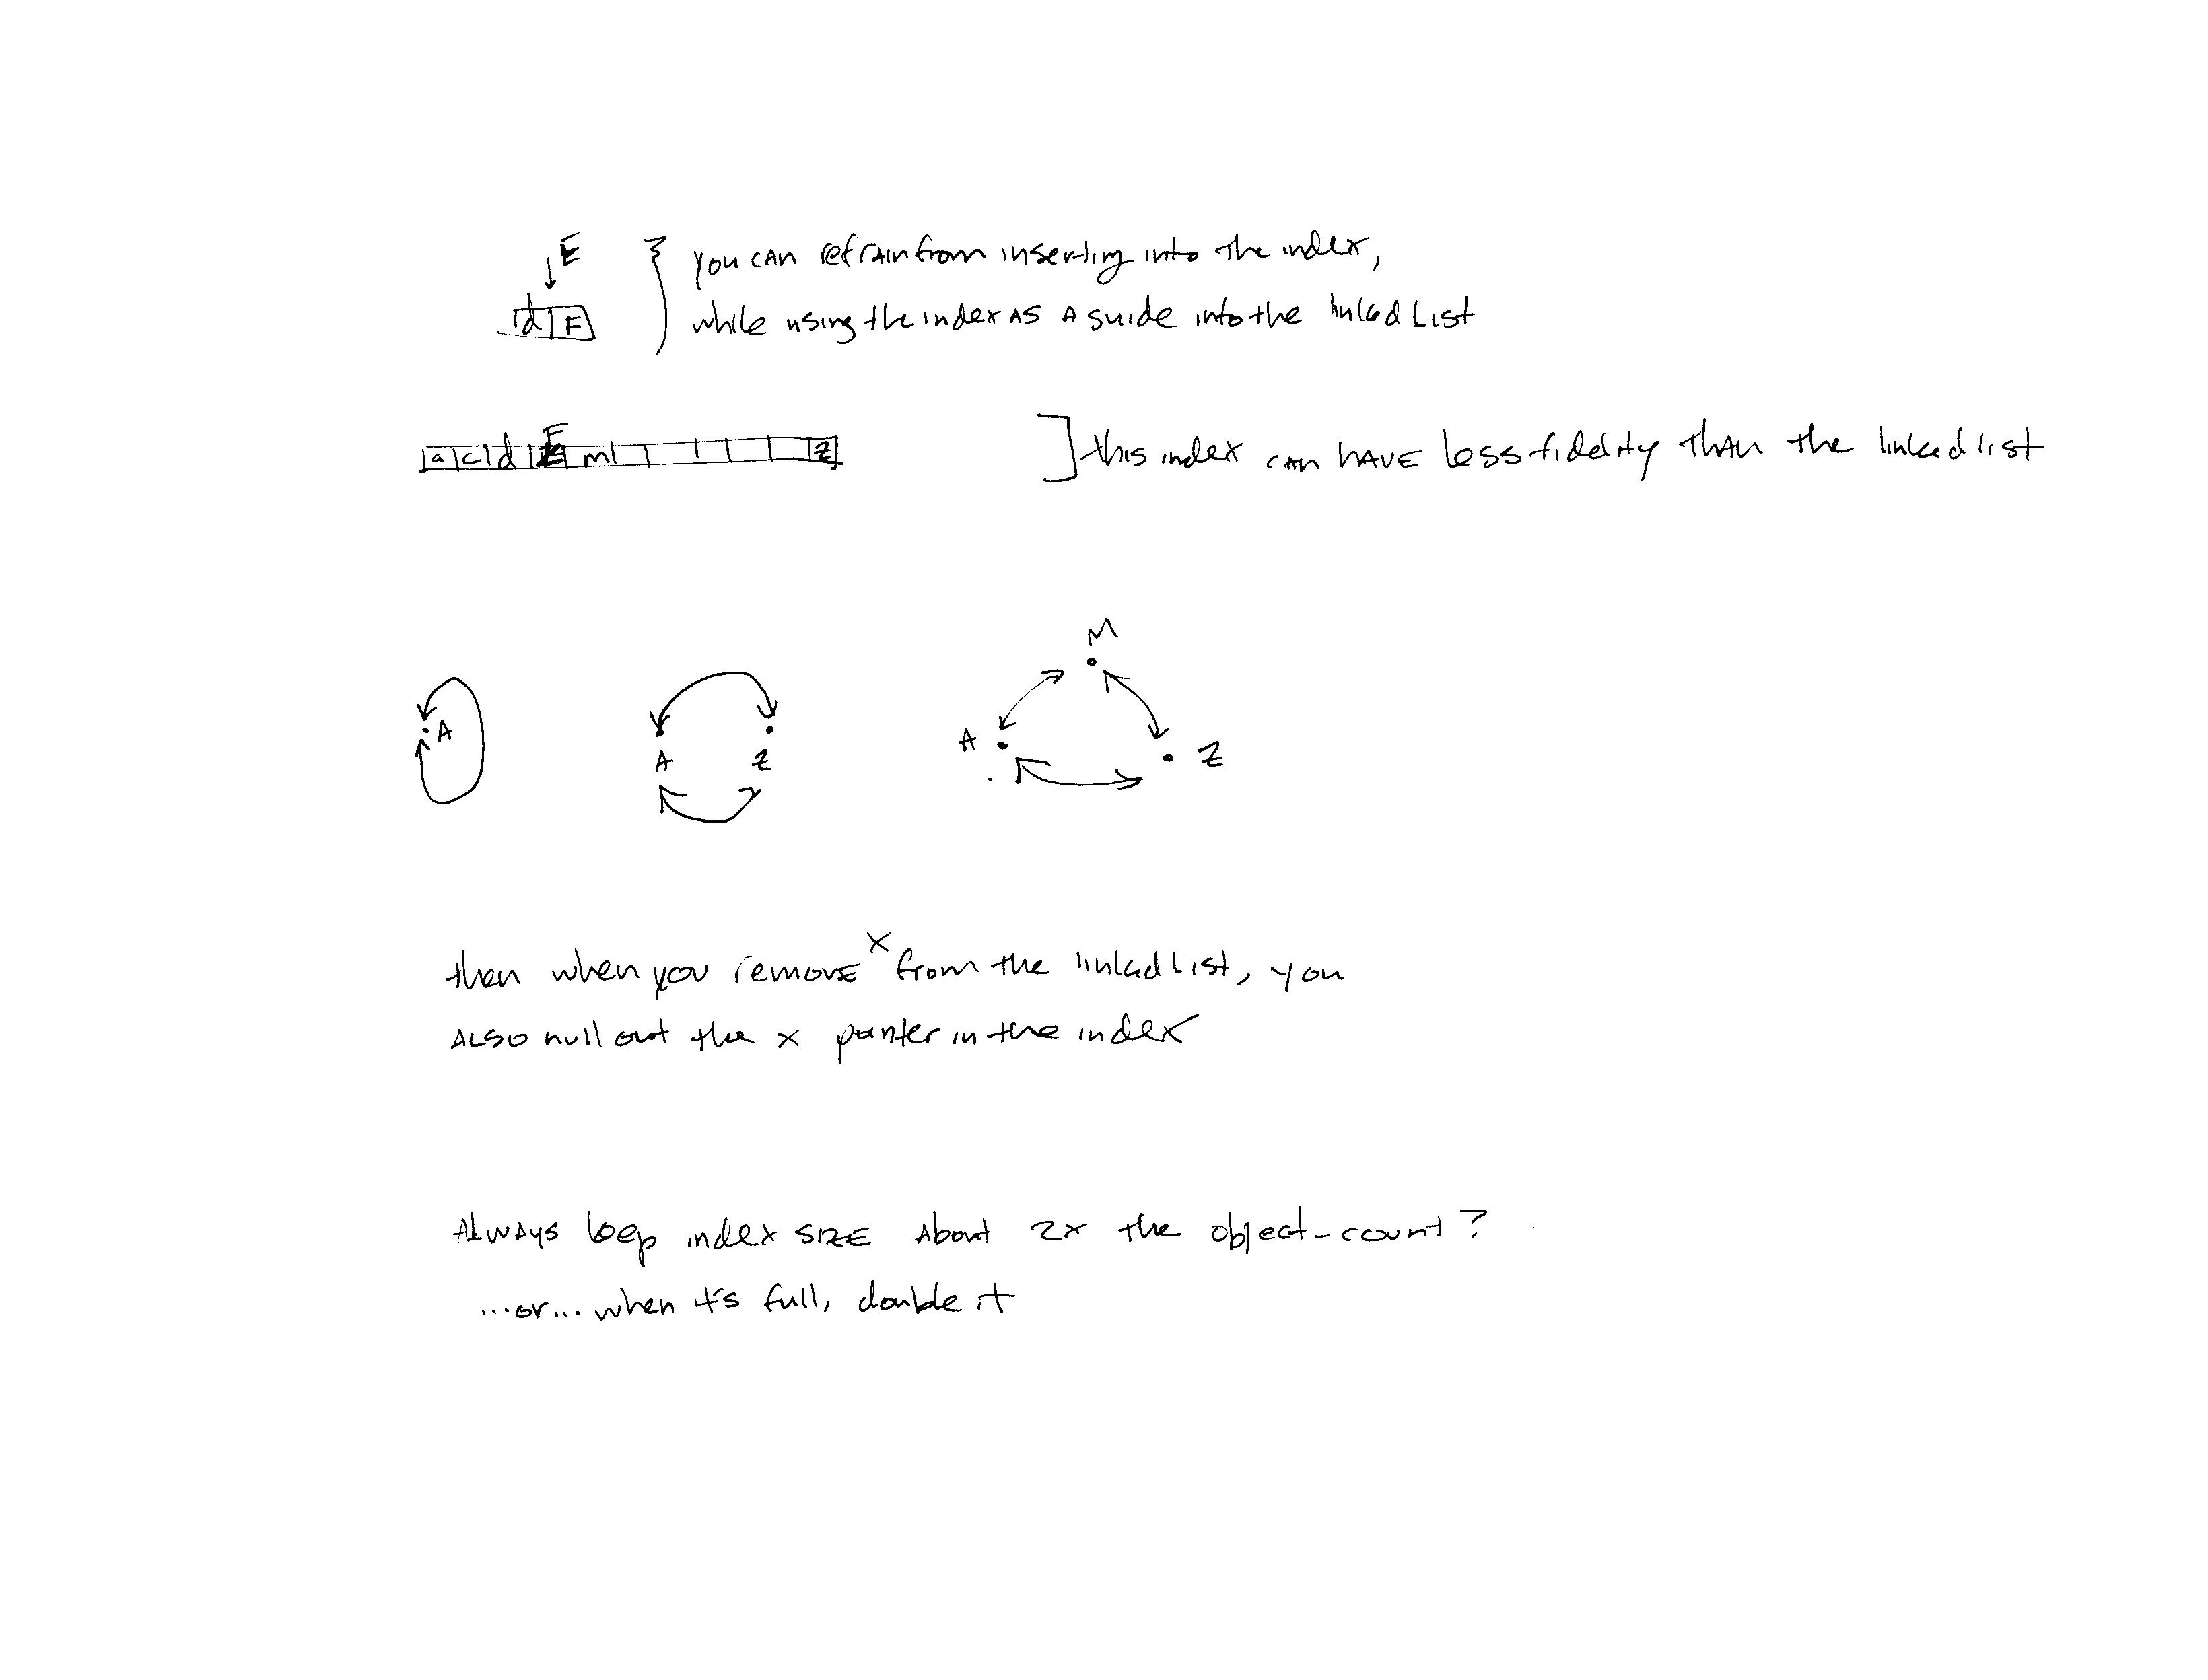 E
d F
you can refrain from inserting into the index,
while using the index as a guide into the linked list
F
a c d m z
this index can have less fidelity than the linked list
M
A
A z
A z
then when you remove x from the linked list, you
also null out the x pointer in the index
Always keep index size about 2x the object-count?
...or... when it's full, double it